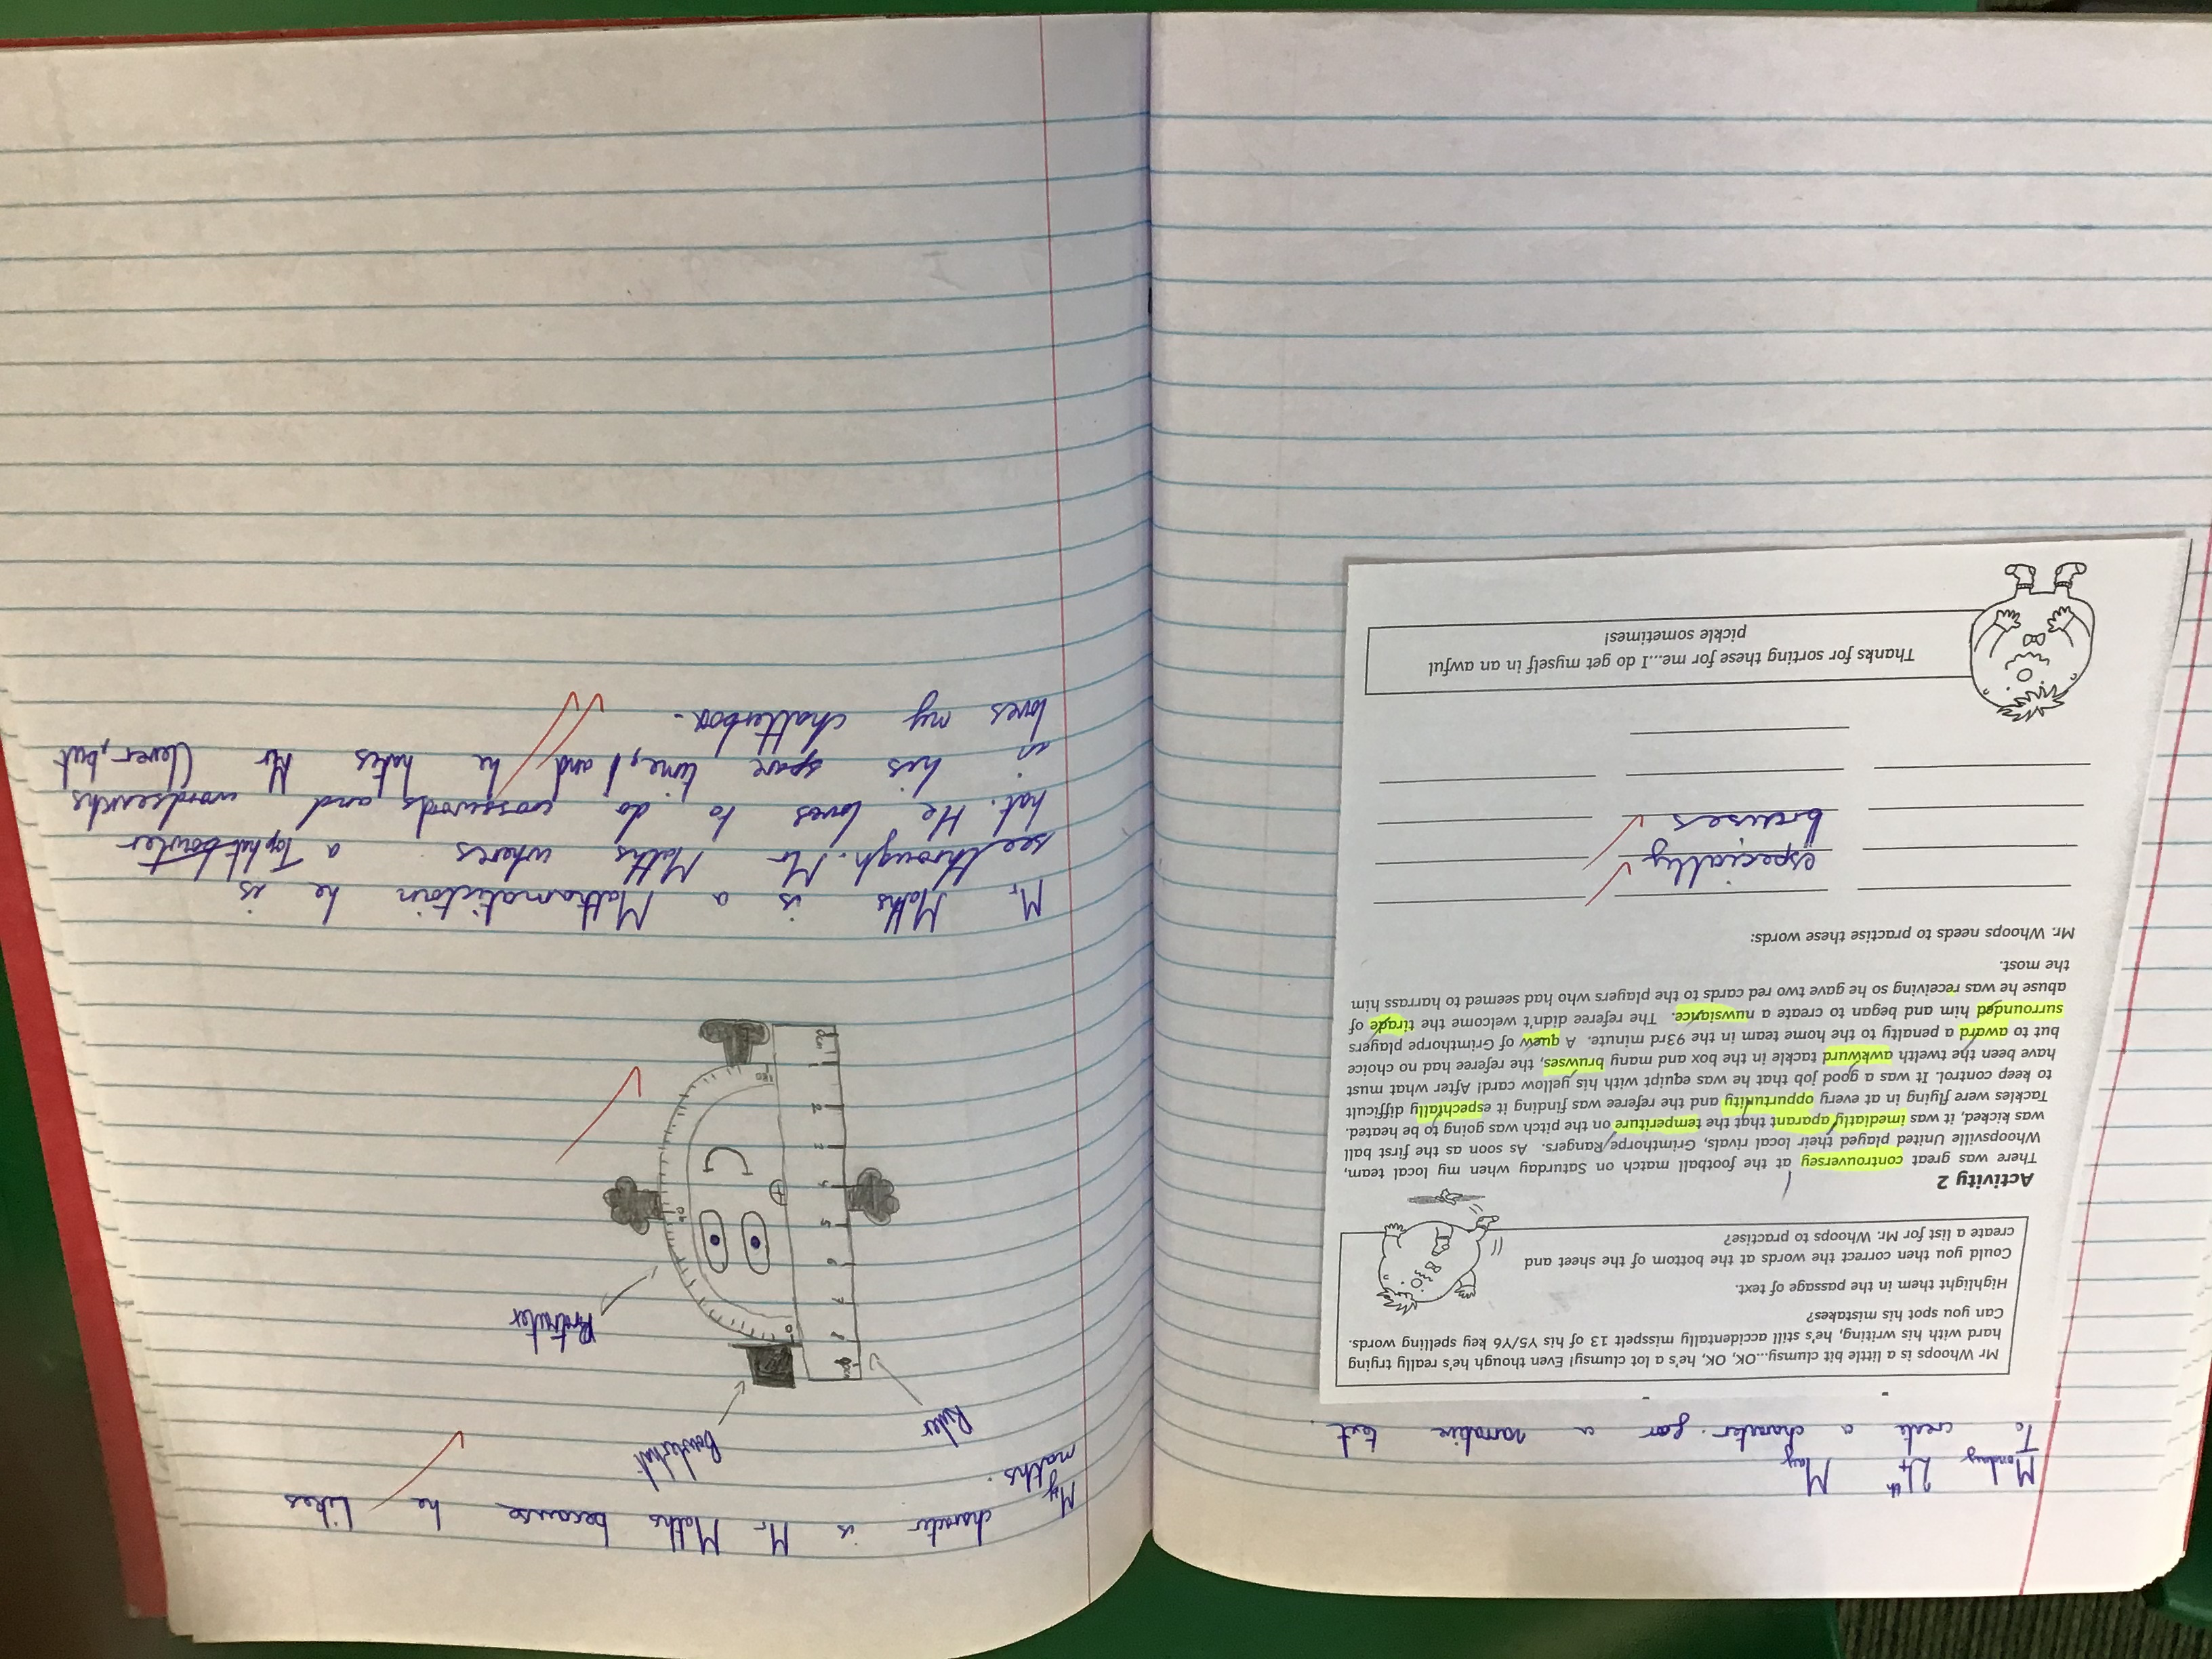 Monday 24th May
To create a character for a narrative text.
Mr Whoops is a little bit clumsy...OK, OK, he's a lot clumsy! Even though he's really trying
hard with his writing, he's still accidentally misspelt 13 of his Y5/Y6 key spelling words.
Can you spot his mistakes?
Highlight them in the passage of text.
Could you then correct the words at the bottom of the sheet and
create a list for Mr. Whoops to practise?
Activity 2
There was great controuversey at the football match on Saturday when my local team,
Whoopsville United played their local rivals, Grimthorpe Rangers. As soon as the first ball
was kicked, it was imediatly aparant that the temperiture on the pitch was going to be heated.
Tackles were flying in at every oppurtunity and the referee was finding it espechially difficult
to keep control. It was a good job that he was equipt with his yellow card! After what must
have been the twelth awkwurd tackle in the box and many bruwses, the referee had no choice
but to award a penalty to the home team in the 93rd minute. A quew of Grimthorpe players
surrounded him and began to create a nuwsiance. The referee didn't welcome the tirade of
abuse he was receiving so he gave two red cards to the players who had seemed to harrass him
the most.
Mr. Whoops needs to practise these words:
especially
bruises
Thanks for sorting these for me...I do get myself in an awful
pickle sometimes!
My character is Mr Maths because he likes
maths.
Ruler
Bowlerhat
Protracter
0
90
180
8
7
6
5
4
3
2
1
Mr Maths is a Mathamatictain he is
see through. Mr Maths wheres a Tophat bowler
hat. He loves to do crosswords and wordserchs
in his spare time, and he hates Mr Clever, but
loves my chatterbox.